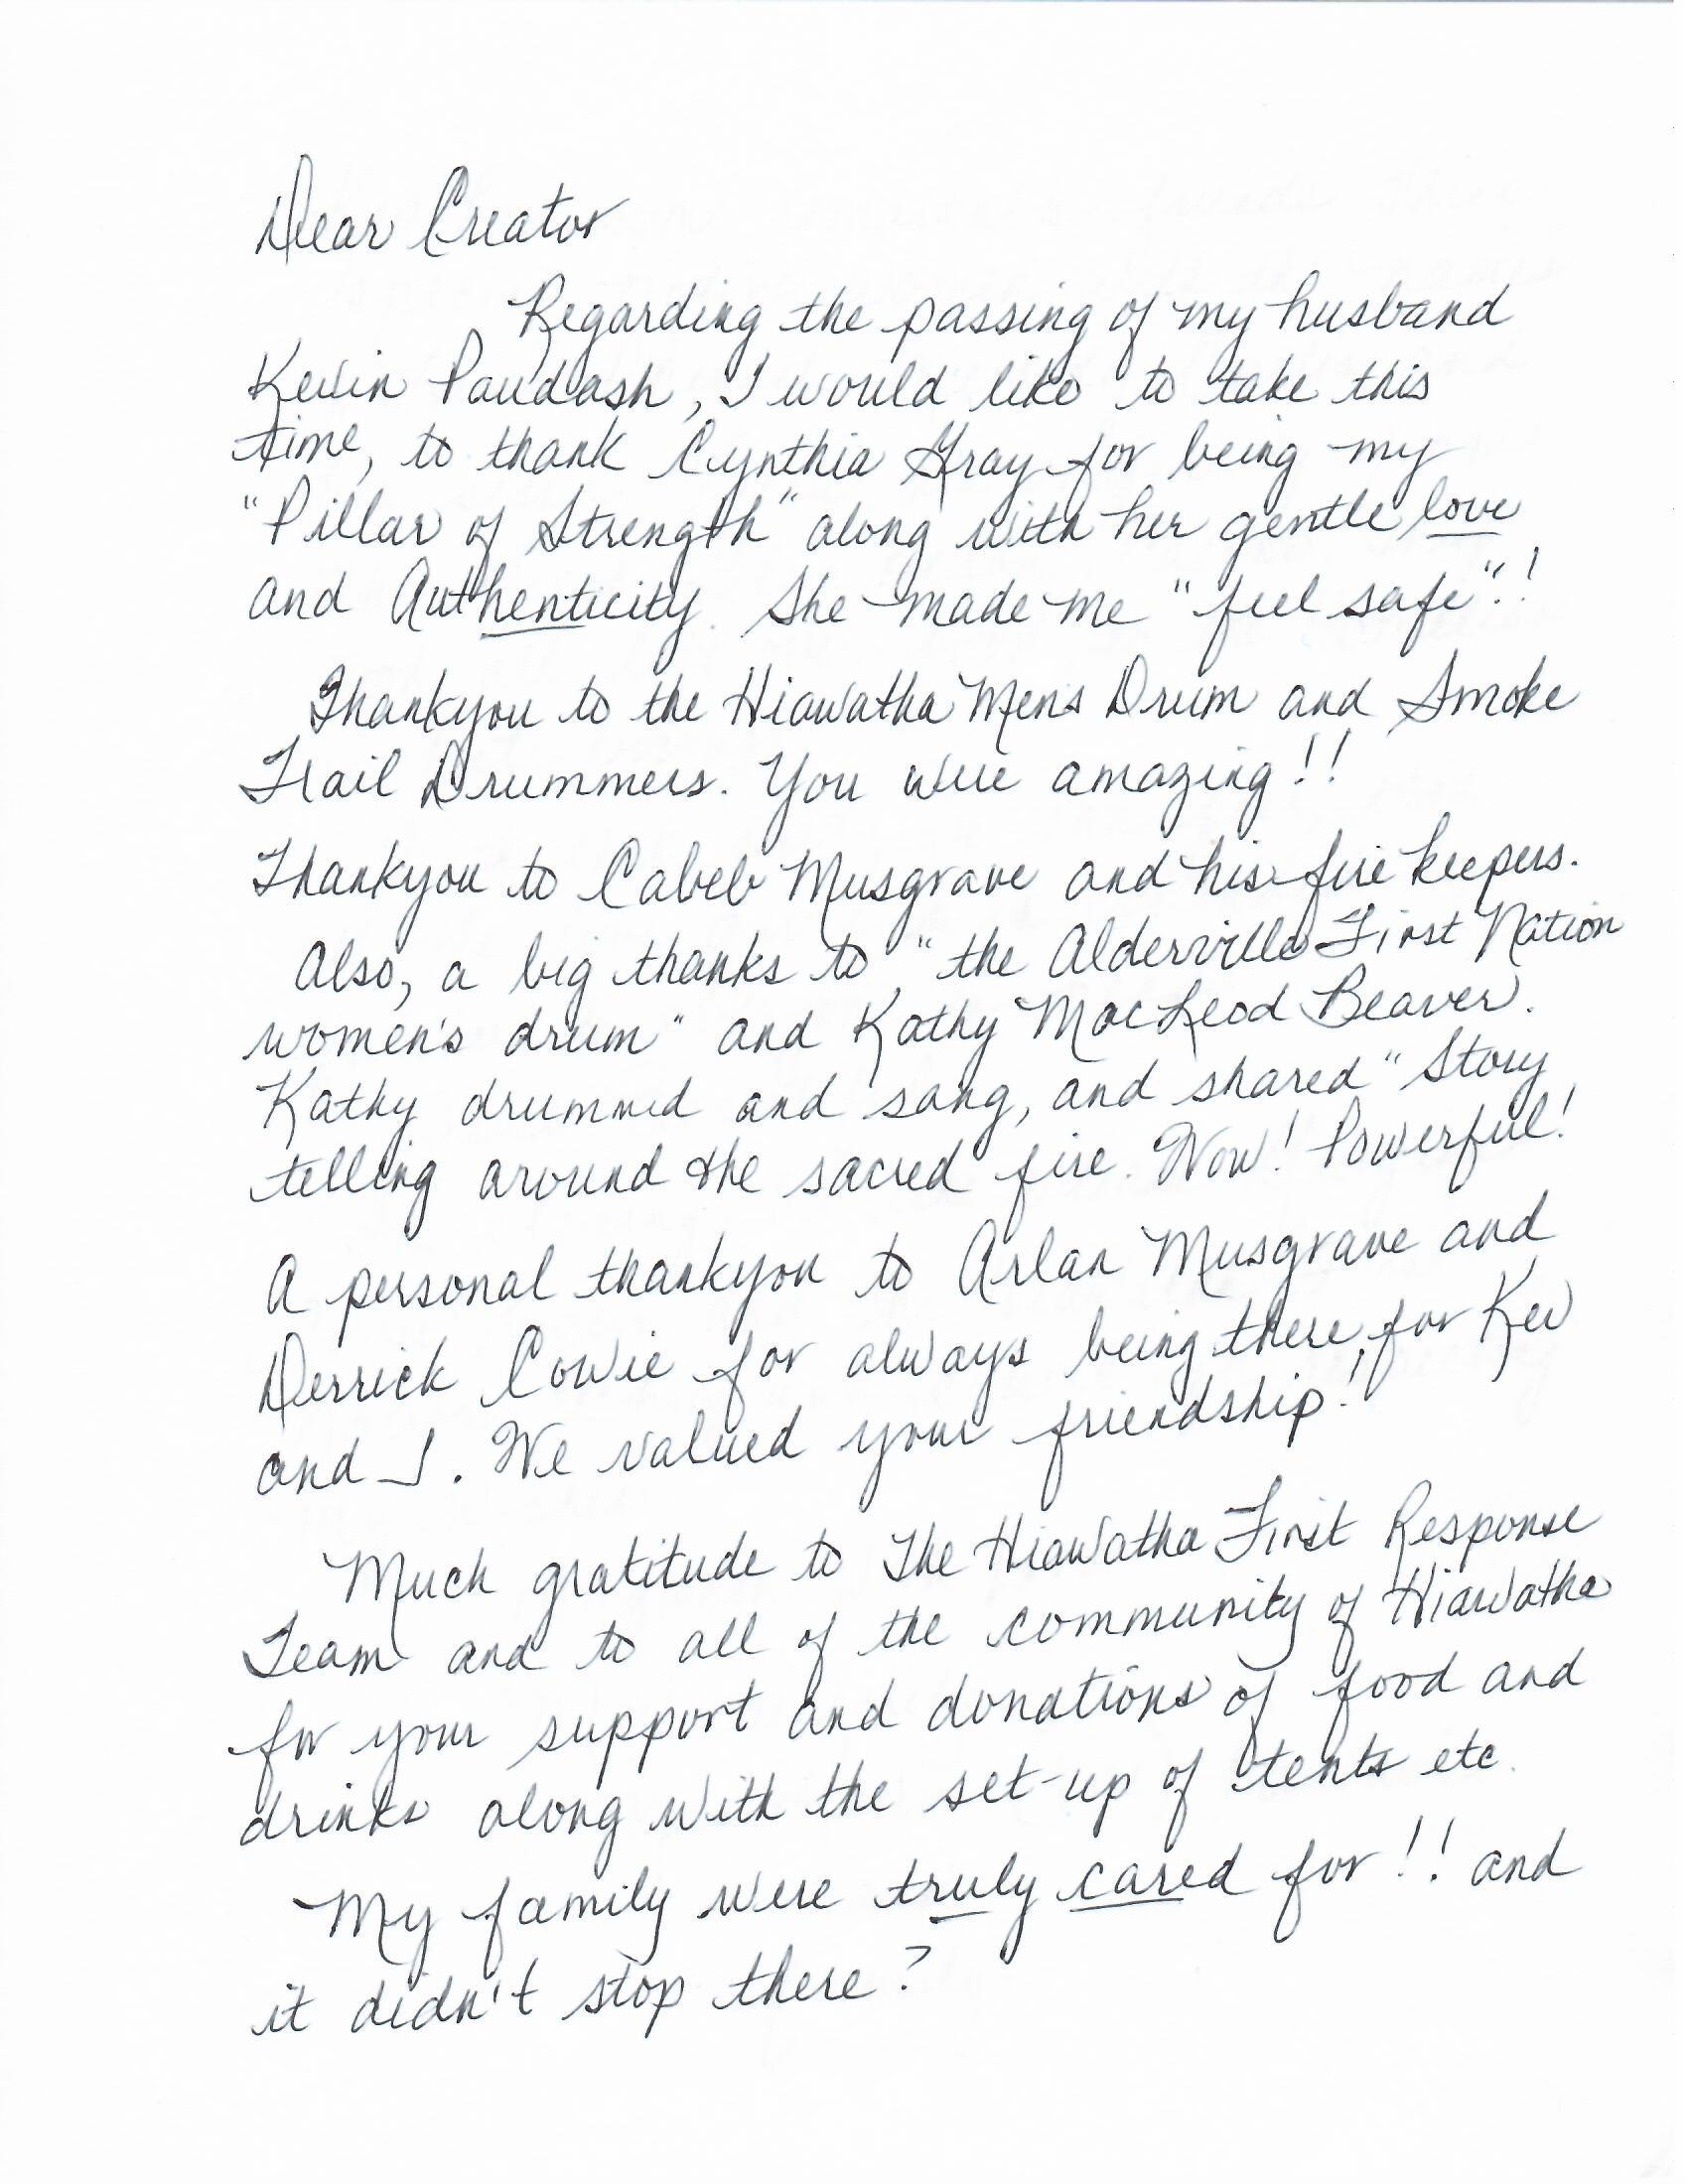 Dear Creator
Regarding the passing of my husband
Kevin Paudash, I would like to take this
time, to thank Cynthia Gray for being my
"Pillar of Strength" along with her gentle love
and Authenticity. She made me "feel safe"!!
Thankyou to the Hiawatha Mens Drum and Smoke
Trail Drummers. You were amazing!!
Thankyou to Cabeb Musgrave and his fire keepers.
Also, a big thanks to, "the Alderville First Nation
women's drum" and Kathy MacLeod Beaver.
Kathy drummed and sang, and shared "Story
telling around the sacred fire. Wow! Powerful!
A personal thankyou to Arlan Musgrave and
Derrick Cowie for always being there, for Kev
and I. We valued your friendship!
Much gratitude to The Hiawatha First Response
Team and to all of the community of Hiawatha
for your support and donations of food and
drinks along with the set-up of tents etc.
My family were truly cared for!! and
it didn't stop there?